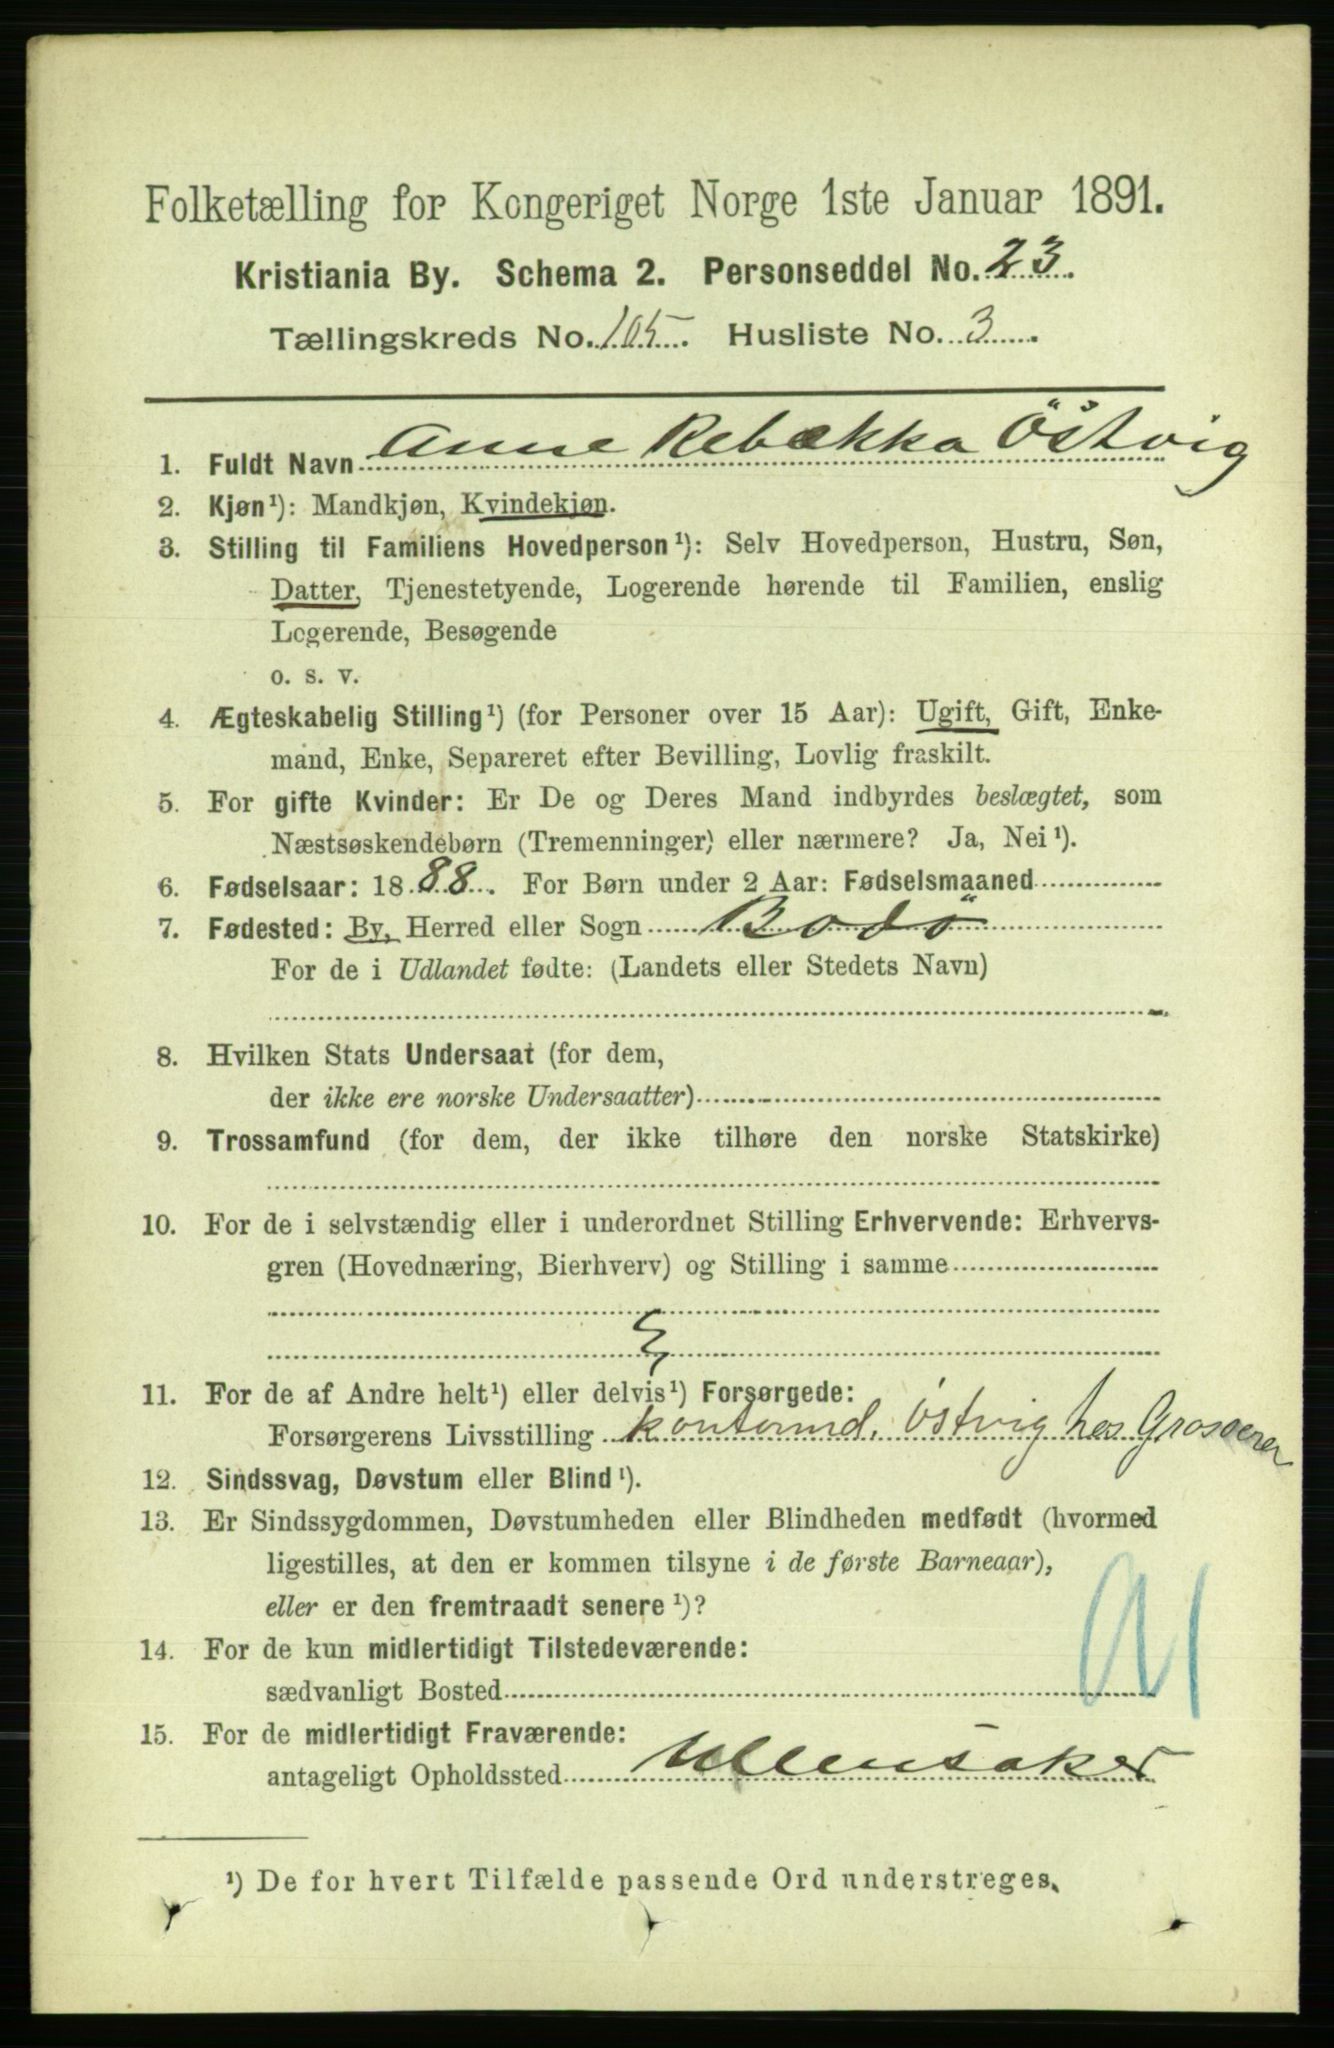 Folketælling for Kongeriget Norge 1ste Januar 1891.
Kristiania By. Schema 2. Personseddel No. 23.
Tællingskreds No. 105. Husliste No. 3.
1. Fuldt Navn Anne Rebækka Östvig
2. Kjøn¹): Mandkjøn, Kvindekjøn.
3. Stilling til Familiens Hovedperson¹): Selv Hovedperson, Hustru, Søn,
Datter, Tjenestetyende, Logerende hørende til Familien, enslig
Logerende, Besøgende
o. s. v.
4. Ægteskabelig Stilling¹) (for Personer over 15 Aar): Ugift, Gift, Enke-
mand, Enke, Separeret efter Bevilling, Lovlig fraskilt.
5. For gifte Kvinder: Er De og Deres Mand indbyrdes beslægtet, som
Næstsøskendebørn (Tremenninger) eller nærmere? Ja, Nei¹).
6. Fødselsaar: 1888. For Børn under 2 Aar: Fødselsmaaned
7. Fødested: By, Herred eller Sogn Bodö
For de i Udlandet fødte: (Landets eller Stedets Navn)
8. Hvilken Stats Undersaat (for dem,
der ikke ere norske Undersaatter)
9. Trossamfund (for dem, der ikke tilhøre den norske Statskirke)
10. For de i selvstændig eller i underordnet Stilling Erhvervende: Erhvervs-
gren (Hovednæring, Bierhverv) og Stilling i samme
11. For de af Andre helt¹) eller delvis¹) Forsørgede:
Forsørgerens Livsstilling Kontormd. Östvig hos Grosserer
12. Sindssvag, Døvstum eller Blind¹).
13. Er Sindssygdommen, Døvstumheden eller Blindheden medfødt (hvormed
ligestilles, at den er kommen tilsyne i de første Barneaar),
eller er den fremtraadt senere¹)?
14. For de kun midlertidigt Tilstedeværende:
sædvanligt Bosted
15. For de midlertidigt Fraværende:
antageligt Opholdssted Ullensaker
¹) De for hvert Tilfælde passende Ord understreges.